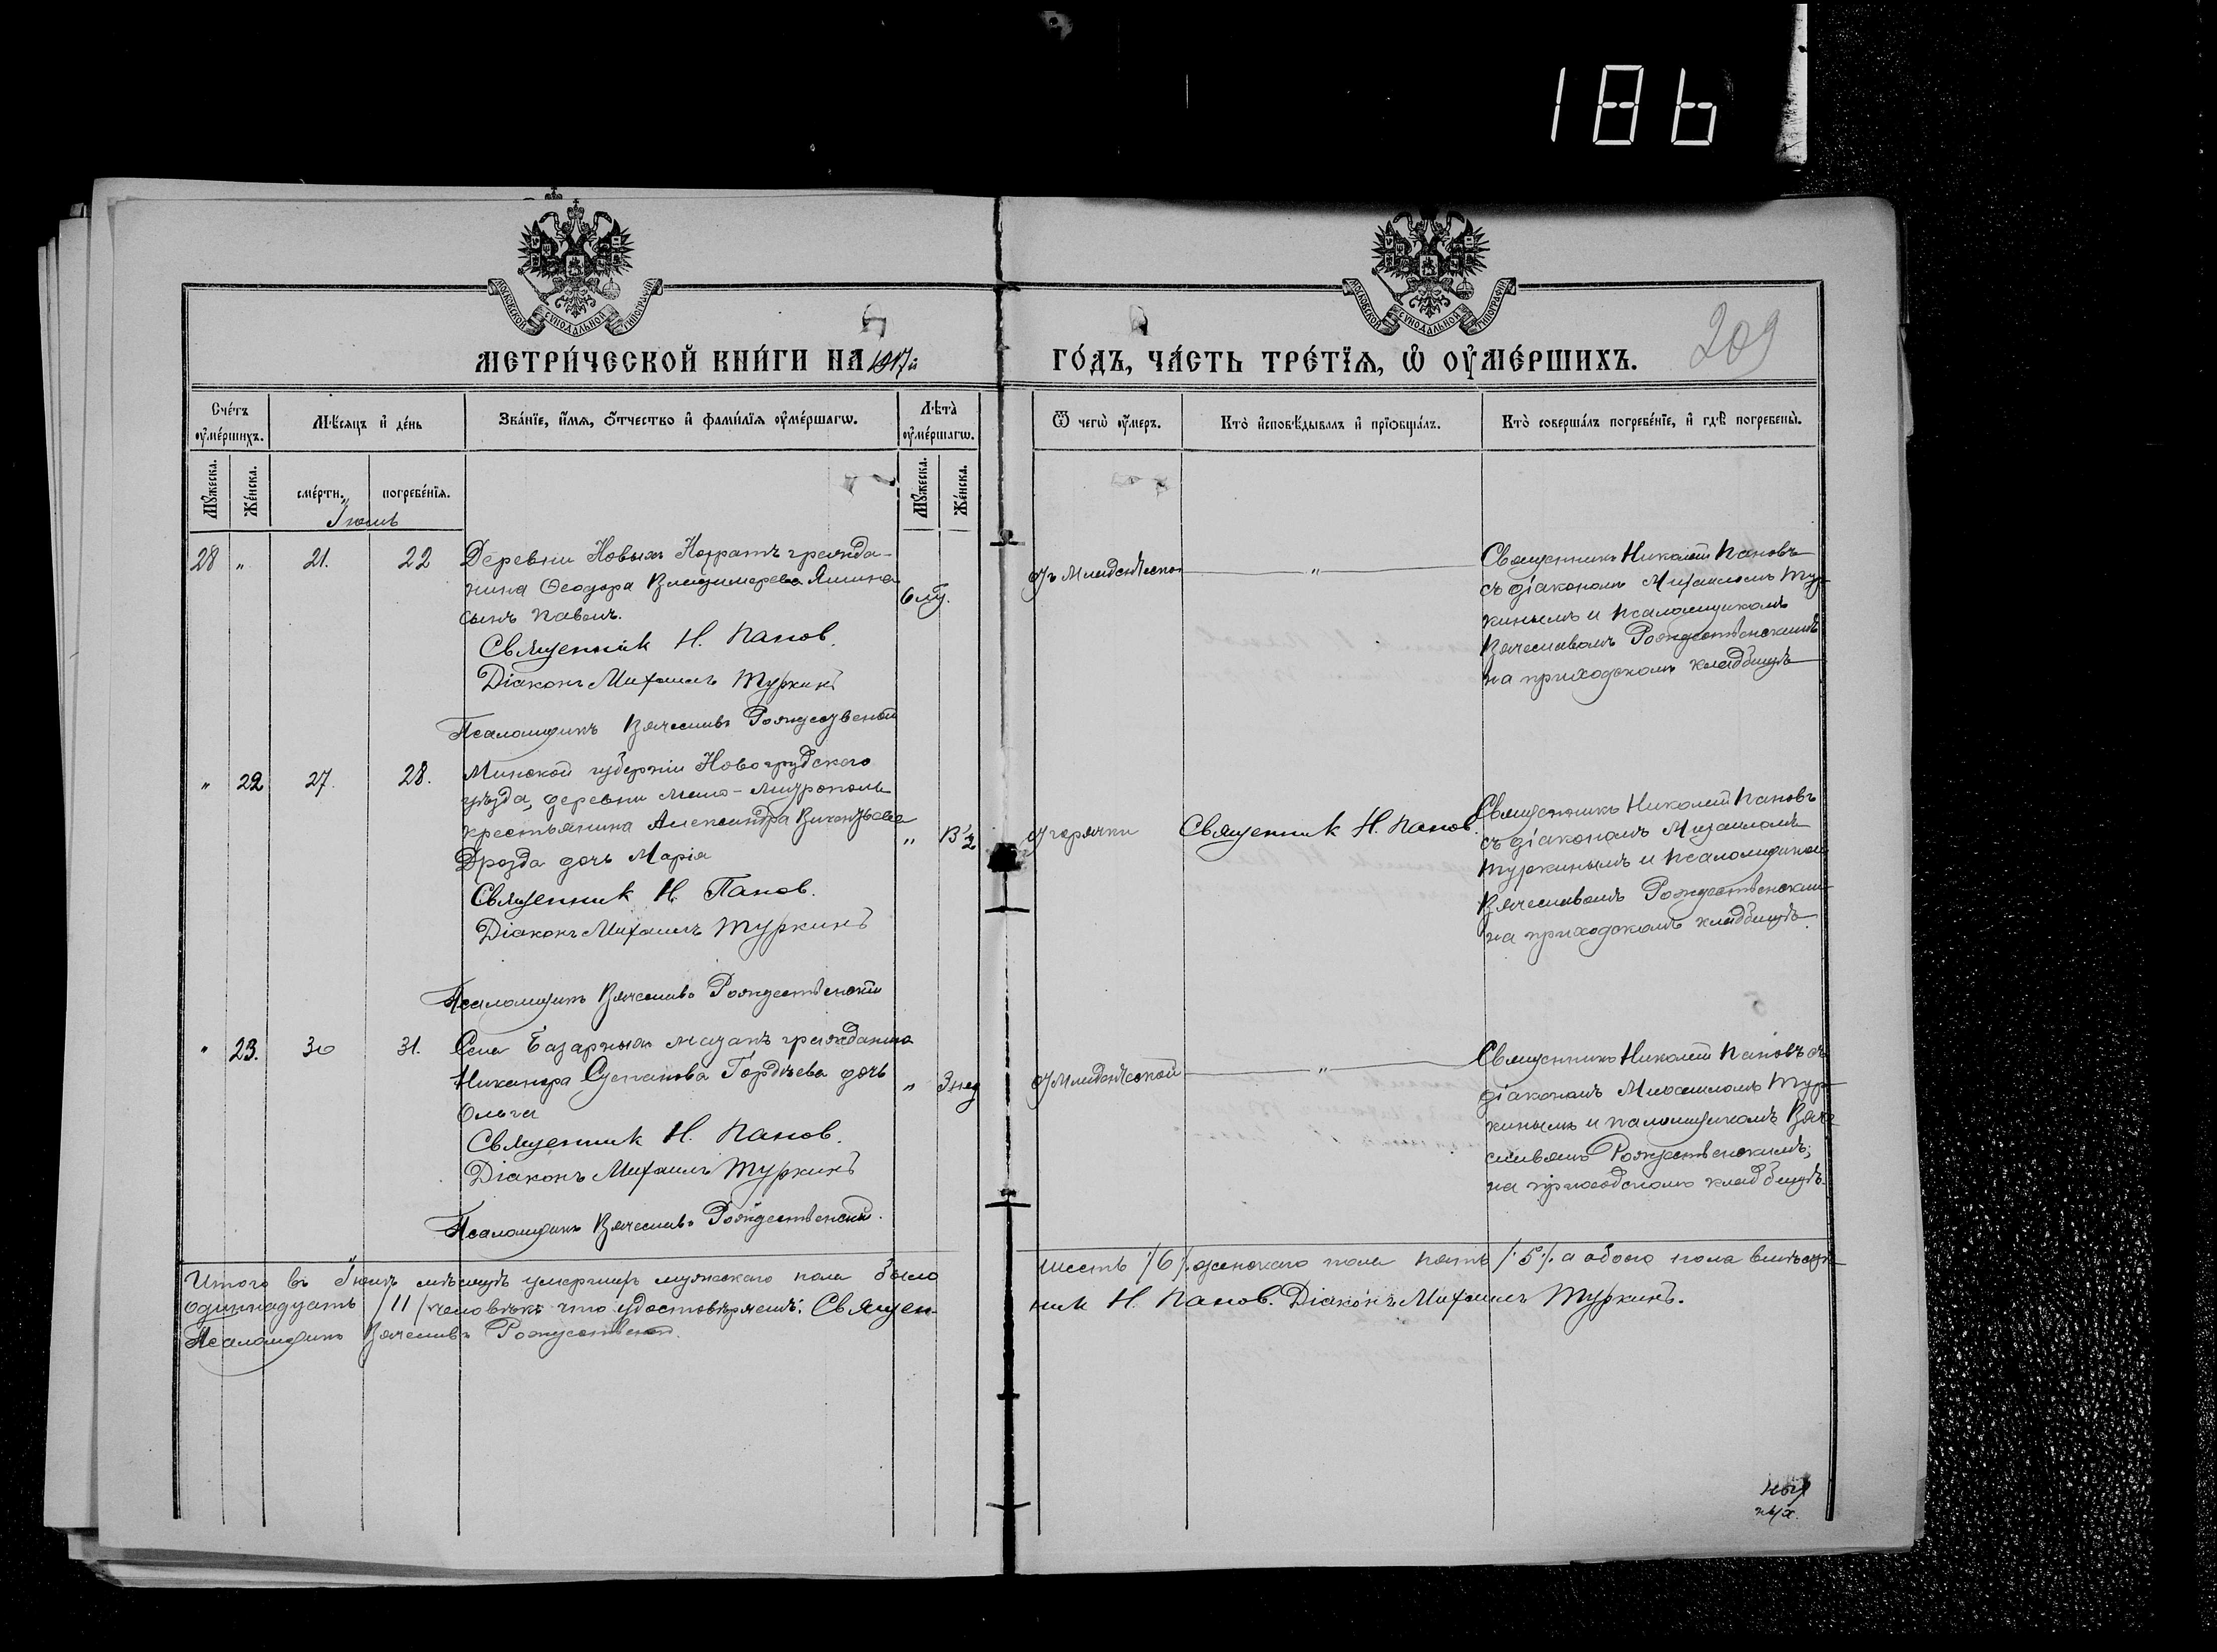 186
МОСКОВСКОЙ СУНОДАЛЬНОЙ ТИПОГРАФІИ
МОСКОВСКОЙ СУНОДАЛЬНОЙ ТИПОГРАФІИ
209
МЕТРИ́ЧЕСКОЙ КНИ́ГИ НА 1917й
ГО́ДЪ, ЧА́СТЬ ТРЕ́ТЇѦ, Ѡ҆ ОУ҆МЕ́РШИХЪ.
Сче́тъ оу҆ме́ршихъ.
Мѣ́сѧцъ и҆ де́нь
Зва́нїе, и҆́мѧ, ѻ҆́тчество и҆ фами́лїѧ оу҆ме́ршагѡ.
Лѣ̑та̀ оу҆ме́ршагѡ.
Ѿ чегѡ̀ оу҆́меръ.
Кто̀ и҆сповѣ́дывалъ и҆ прїѻбща́лъ.
Кто̀ соверша́лъ погребе́нїе, и҆ гдѣ̀ погребены̀.
Мꙋ́жеска.
Же́нска.
сме́рти.
погребе́нїѧ.
Мꙋ́жеска.
Же́нска.
Іюль
28 " 21. 22 Деревни Новыхъ гражда-
нина Ѳеодора Владимерова Яшина
сынъ Павелъ.
Священник Н. Панов.
Діаконъ Михаилъ Туркинъ
Псаломщикъ Вячеславъ Рождественскій
отъ младенческой
"
Священникъ Николай Пановъ
съ діакономъ Михаиломъ Тур-
кинымъ и псаломщикомъ
Вячеславомъ Рождественскимъ
на приходскомъ кладбищѣ
" 22 27. 28. Минской губерніи Новогрудского
уѣзда, деревни
крестьянина Александра Викентьева
Дрозда дочь Марія
" 13½
Священник Н. Панов.
Діаконъ Михаилъ Туркинъ
Псаломщикъ Вячеславъ Рождественскій
отъ горячки
Священник Н. Панов.
Священникъ Николай Пановъ
съ діакономъ Михаиломъ
Туркинымъ и псаломщикомъ
Вячеславомъ Рождественским
на приходскомъ кладбищѣ.
" 23. 30 31. Села Базарныхъ Матакъ гражданина
Никанора Степанова Гордѣева дочь
Ольга
" 3 нед
Священник Н. Панов.
Діаконъ Михаилъ Туркинъ
Псаломщикъ Вячеславъ Рождественскій.
отъ младенческой
"
Священникъ Николай Пановъ съ
діакономъ Михаиломъ Тур-
кинымъ и псаломщикомъ Вяче-
славомъ Рождественскимъ,
на приходскомъ кладбищѣ.
Итого въ Іюлѣ мѣсяцѣ умершихъ мужескаго пола было
шесть /6/. женскаго пола пять /5/. а обоего пола вмѣстѣ
одиннадцать /11/ человѣкъ что удостовѣряемъ: Священ-
ник Н. Панов. Діаконъ Михаилъ Туркинъ.
Псаломщикъ Вячеславъ Рождественскій.